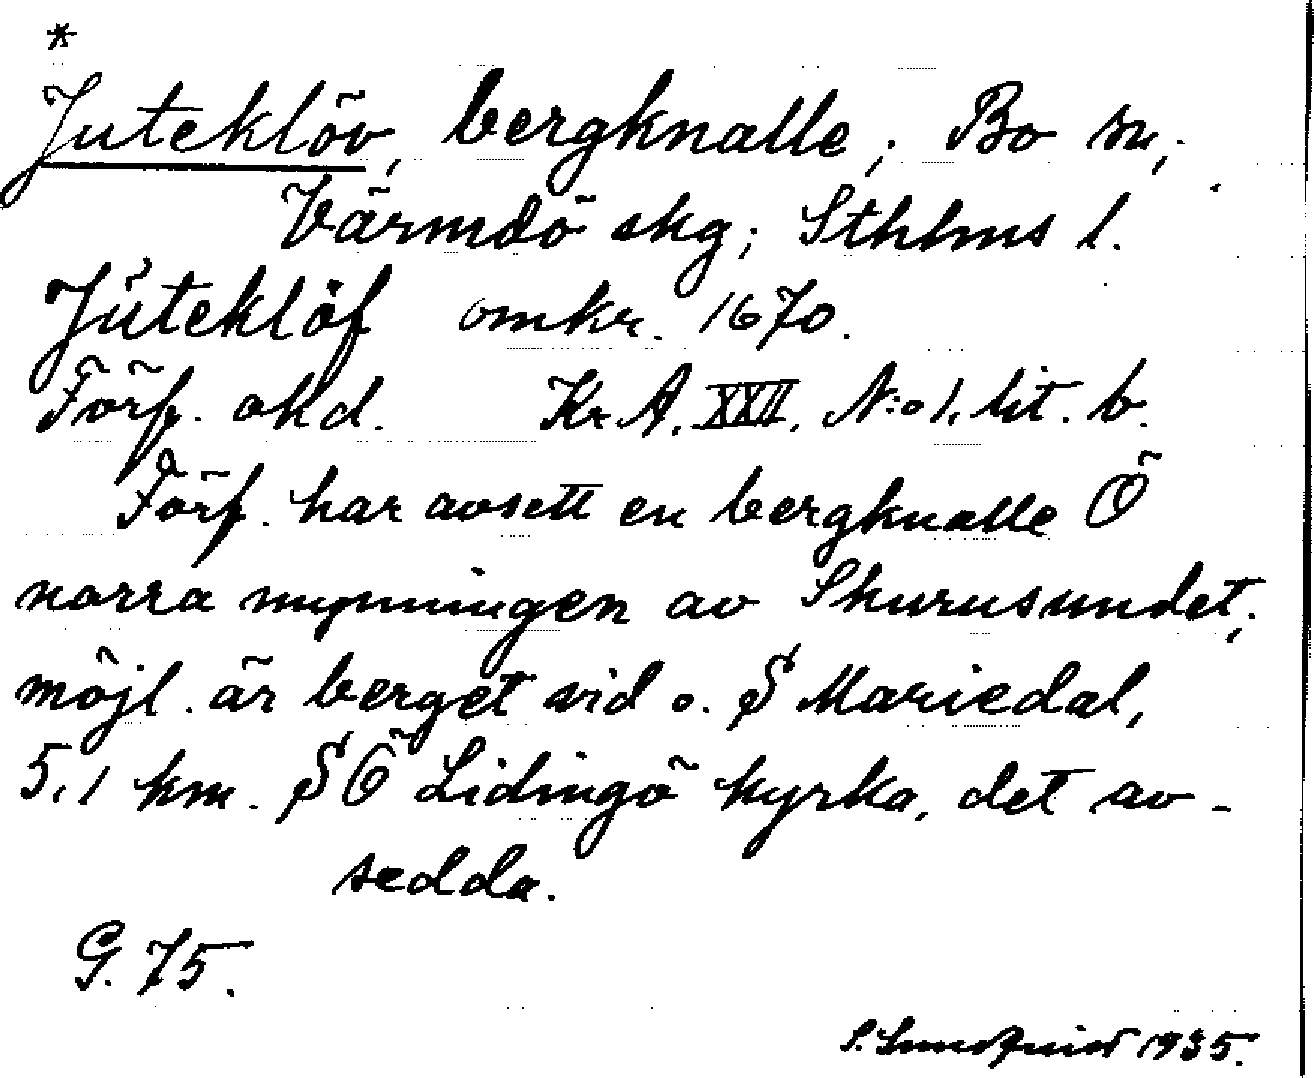 *
Juteklöv, bergknalle; Bo sn,
Värmdö skg; Sthlms l.
Jüteklöf omkr. 1670.
Förf. okd. Kr A. XXII, N:o 1, lit. b.
Förf. har avsett en bergknalle Ö
norra mynningen av Skurusundet;
möjl. är berget vid o. S Mariedal,
5,1 km. SÖ Lidingö kyrka, det av-
sedda.
G. 75.
S. Lundquist 1935.